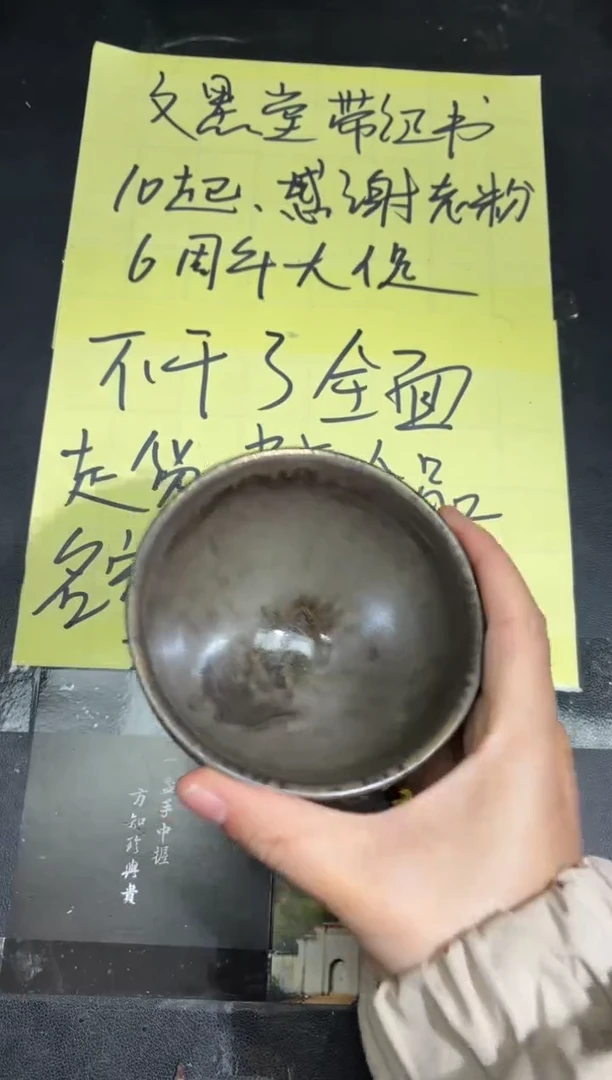 文黑堂带证书
10起、感谢老粉
6周年大促
不干了全面
走货
名
一盏手中握
方知珍与贵